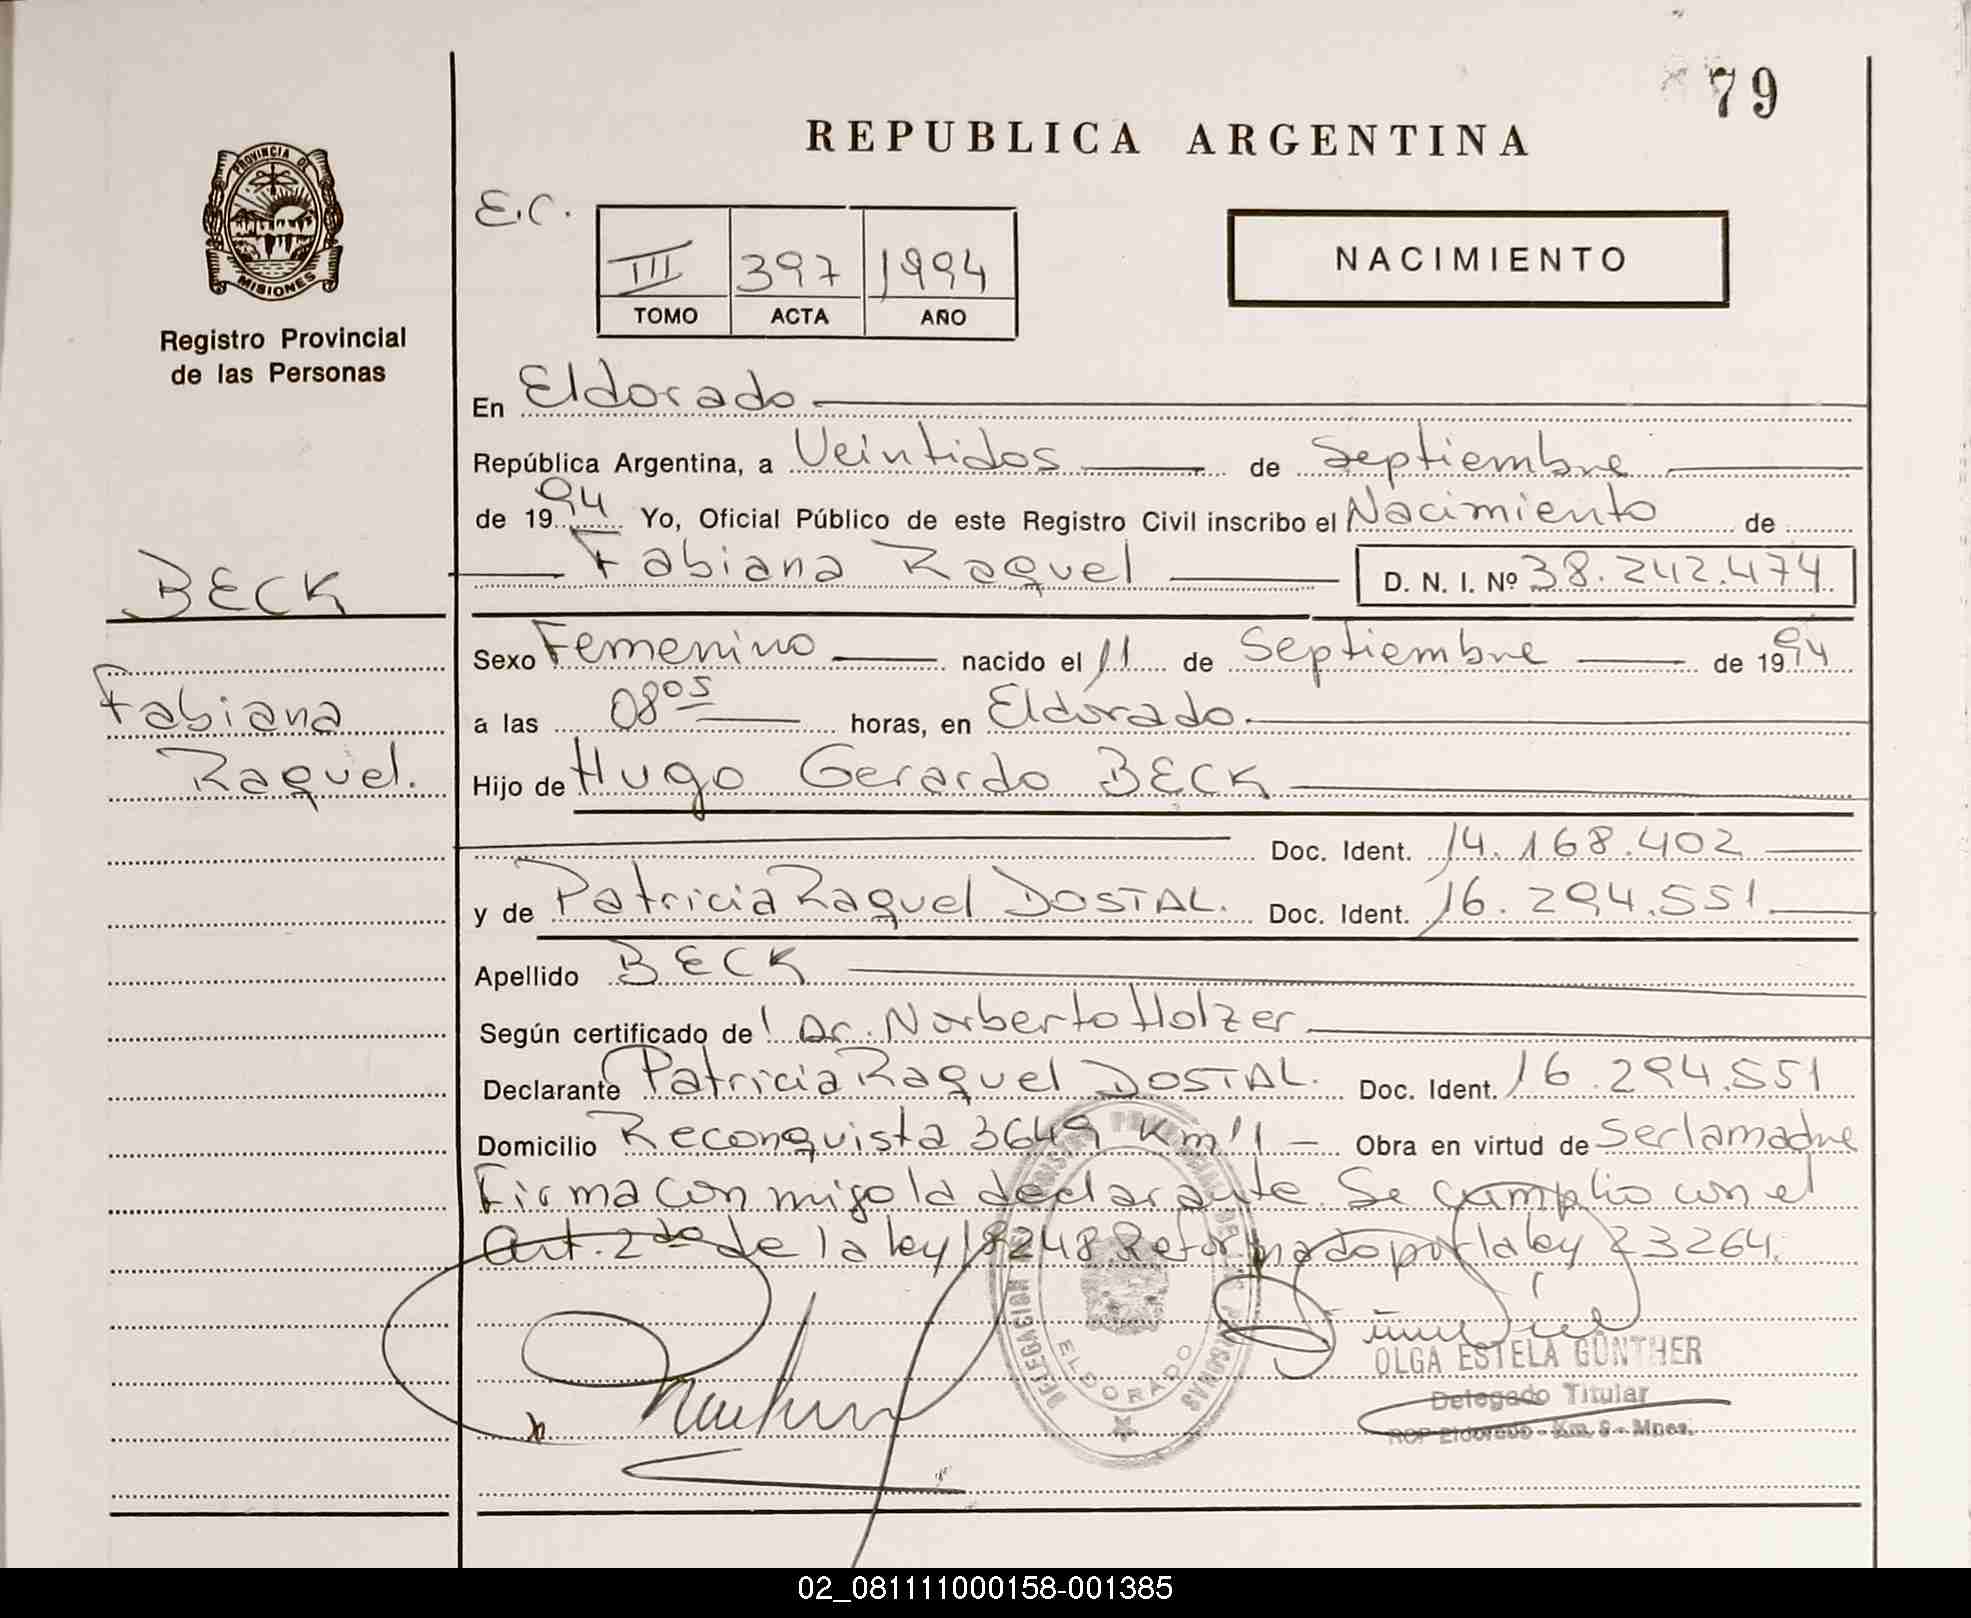 79
REPUBLICA ARGENTINA
PROVINCIA DE
MISIONES
Registro Provincial
de las Personas
E.C.
III 397 1994
TOMO ACTA AÑO
NACIMIENTO
En Eldorado
República Argentina, a Veintidos de Septiembre
de 1994 Yo, Oficial Público de este Registro Civil inscribo el Nacimiento de
Fabiana Raquel D. N. I. Nº 38.242.474.
BECK
Fabiana
Raquel.
Sexo Femenino nacido el 11 de Septiembre de 1994
a las 08 05 horas, en Eldorado.
Hijo de Hugo Gerardo BECK
Doc. Ident. 14.168.402
y de Patricia Raquel DOSTAL. Doc. Ident. 16.294.551
Apellido BECK
Según certificado de Dr. Norberto Holzer
Declarante Patricia Raquel DOSTAL. Doc. Ident. 16.294.551
Domicilio Reconquista 3649 Km 11 Obra en virtud de Ser la madre
Firma con migo la declarante. Se cumplio con el
Art. 2do de la ley 18248 Reformado por la ley 23264.
DELEGACION REGISTRO PROVINCIAL DE LAS PERSONAS
ELDORADO
OLGA ESTELA GUNTHER
Delegado Titular
RCP Eldorado - Km. 9 - Mnes.
02_081111000158-001385